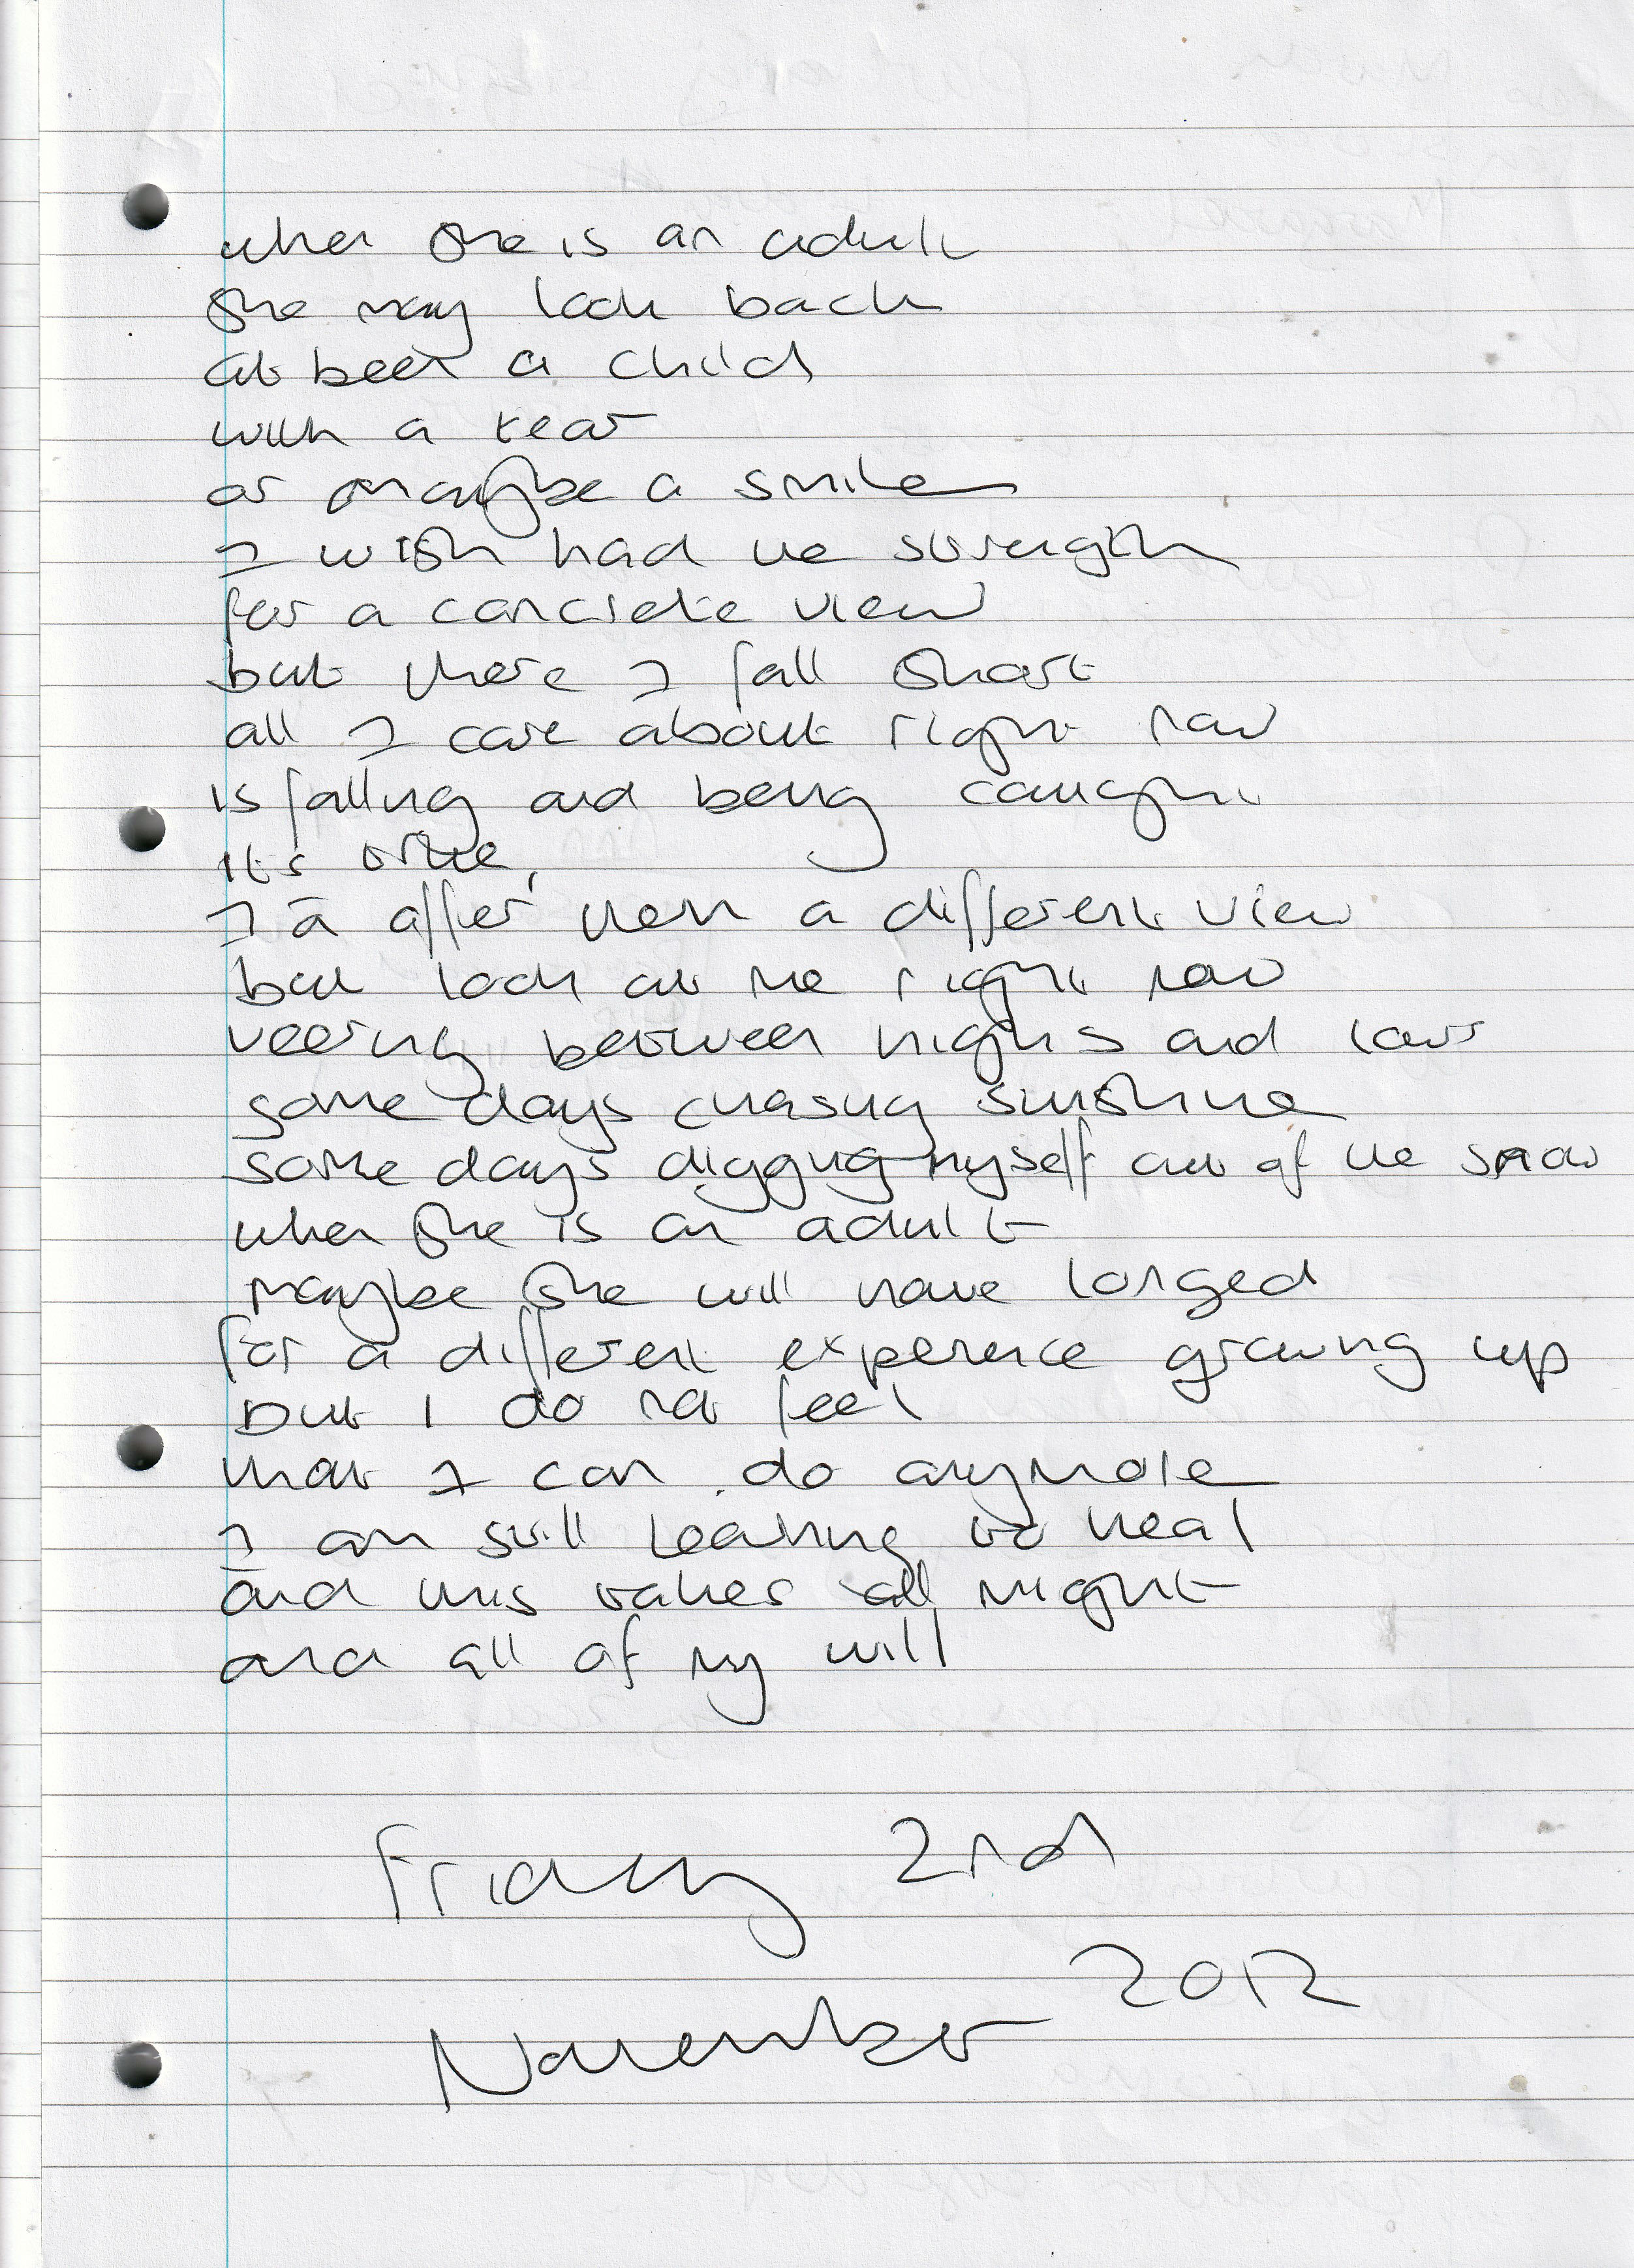 when she is an adult
she may look back
at been a child
with a tear
or maybe a smile
I wish had the strength
for a concrete view
but there I fall short
all I care about right now
is falling and being caught
its true,
I'd offer them a different view
but look at me right now
veering between highs and lows
some days chasing sunshine
some days digging myself out of the snow
when she is an adult
maybe she will have longed
for a different experience growing up
but I do not feel
that I can do anymore
I am still learning to heal
and this takes all might
and all of my will
Friday 2nd
November 2012